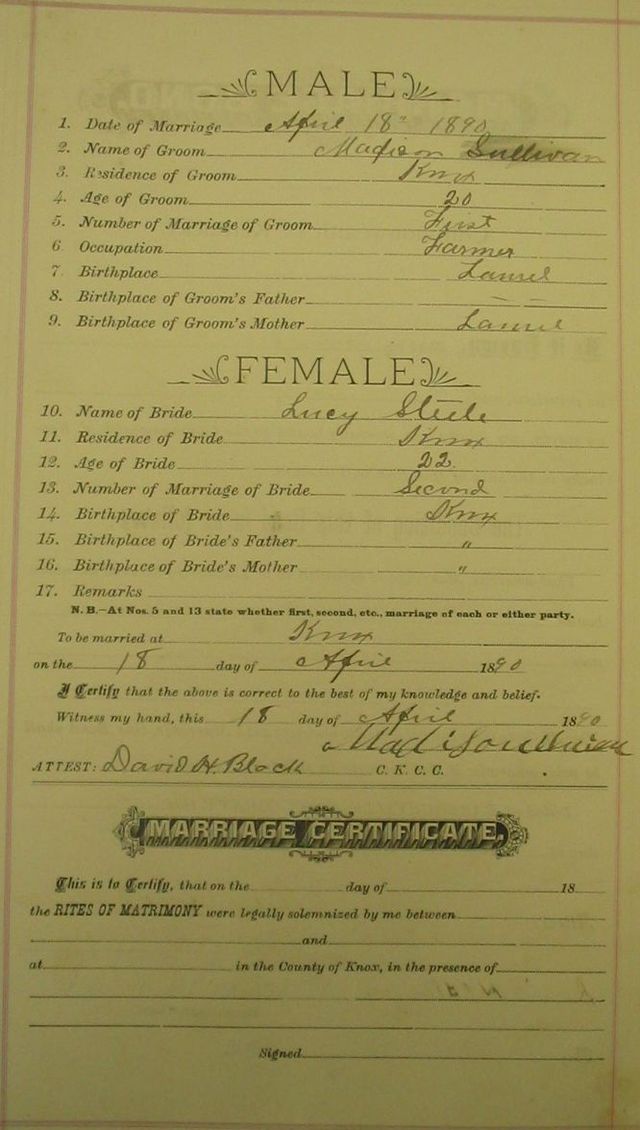 MALE
1. Date of Marriage April 18" 1890
2. Name of Groom Madison Sullivan
3. Residence of Groom Knox
4. Age of Groom 20
5. Number of Marriage of Groom First
6 Occupation Farmer
7. Birthplace Laurel
8. Birthplace of Groom's Father — —
9. Birthplace of Groom's Mother Laurel
FEMALE
10. Name of Bride Lucy Steele
11. Residence of Bride Knox
12. Age of Bride 22.
13. Number of Marriage of Bride Second
14. Birthplace of Bride Knox
15. Birthplace of Bride's Father "
16. Birthplace of Bride's Mother "
17. Remarks
N. B.—At Nos. 5 and 13 state whether first, second, etc., marriage of each or either party.
To be married at Knox
on the 18 day of April 1890
I Certify that the above is correct to the best of my knowledge and belief.
Witness my hand, this 18 day of April 1890
Madison Sullivan
ATTEST: David H. Black C. K. C. C.
MARRIAGE CERTIFICATE.
This is to Certify, that on the day of 18
the RITES OF MATRIMONY were legally solemnized by me between
and
at in the County of Knox, in the presence of
Signed